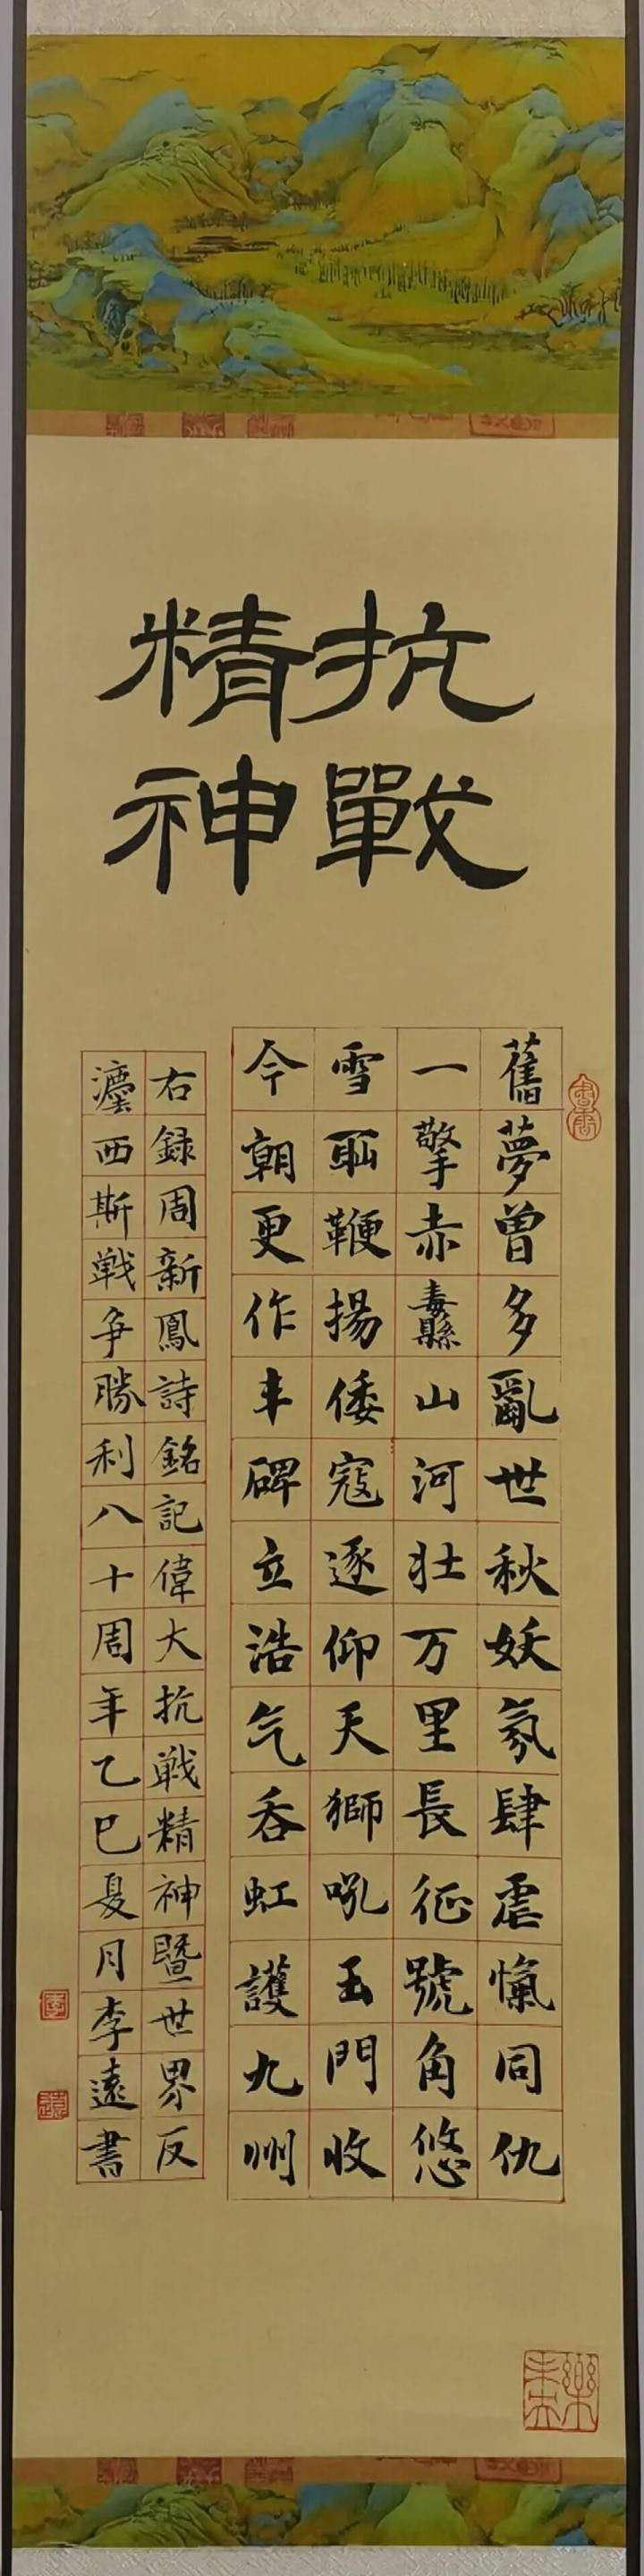 抗戰
精神
舊夢曾多亂世秋妖氛肆虐愾同仇
一擎赤纛山河壯万里長征號角悠
雪耻鞭揚倭寇逐仰天獅吼玉門收
今朝更作丰碑立浩气吞虹護九州
右録周新鳳詩銘記偉大抗戦精神暨世界反
灋西斯戦争勝利八十周年乙巳夏月李遠書
李
遠